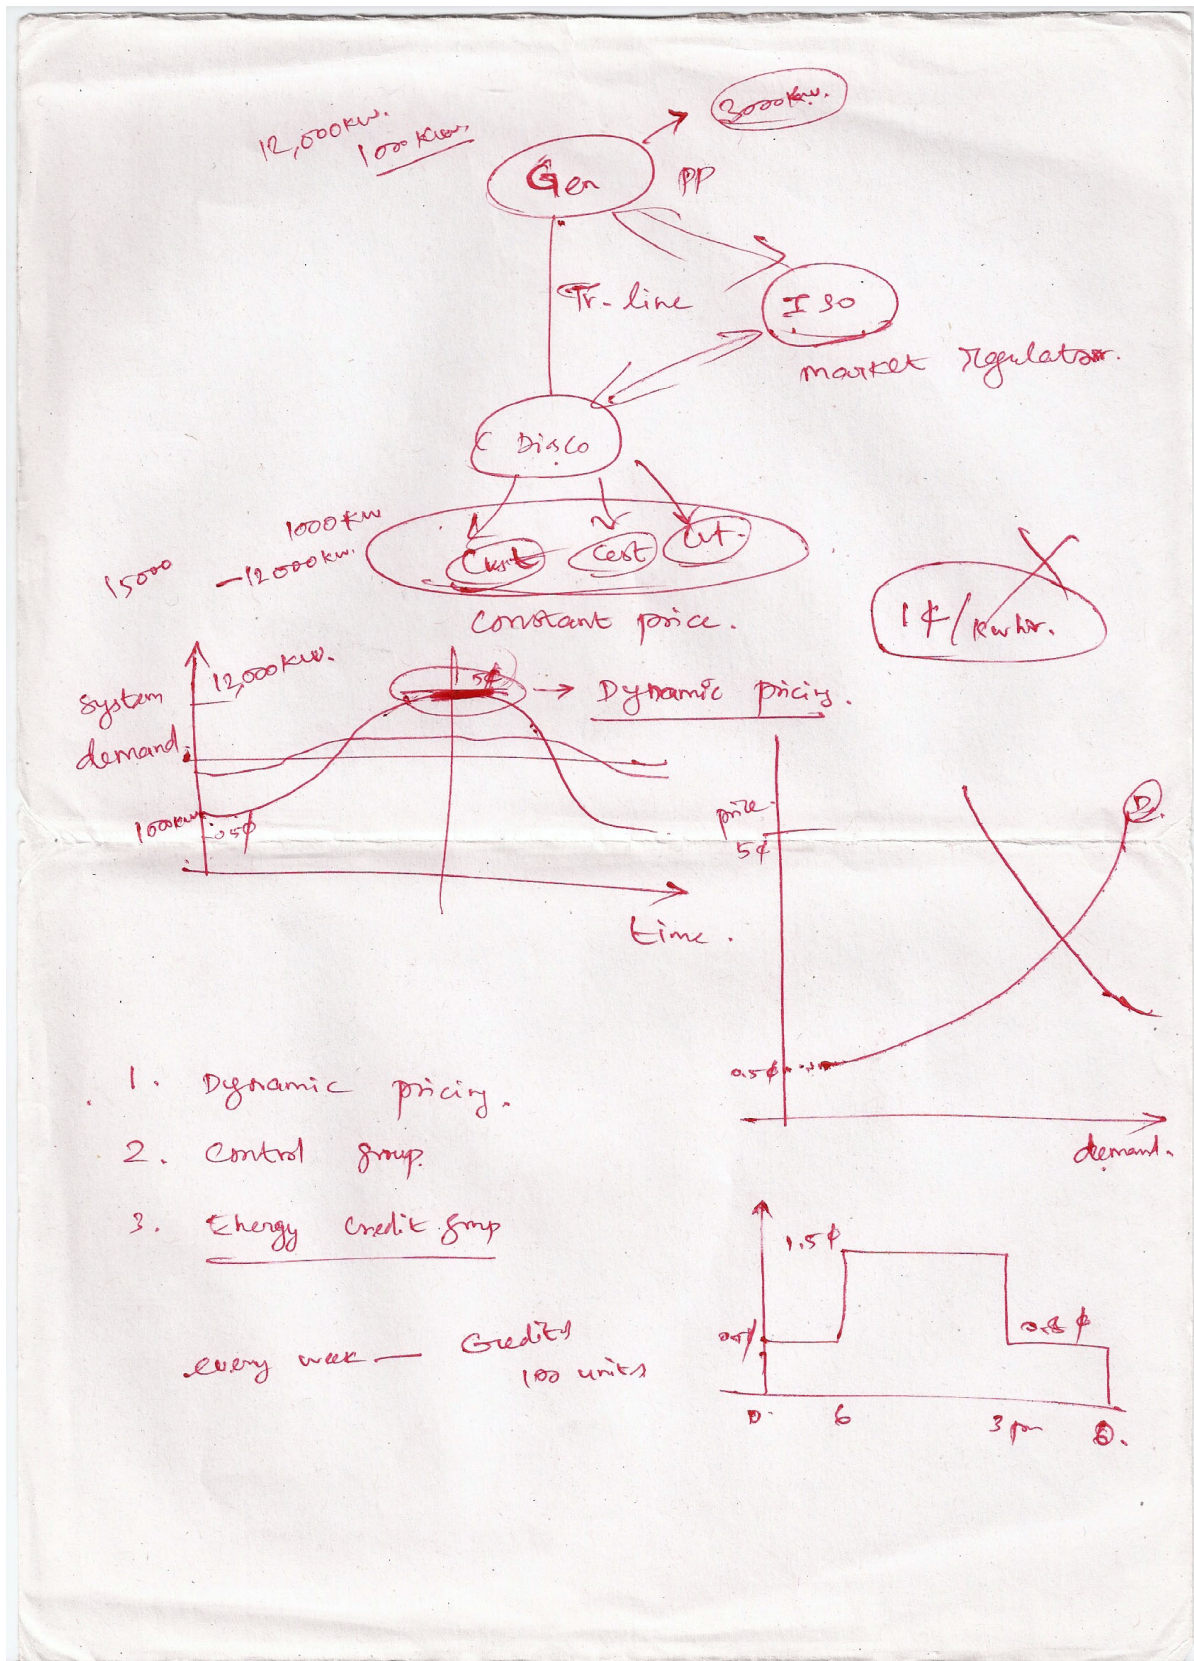 12,000KW.
1000KW
3000KW.
Gen
PP
Tr-line
ISO
market regulator.
Disco
1000KW
15000 -12000KW.
Cust Cust Cut.
constant price.
1¢/Kwhr.
12,000KW.
5¢
Dynamic pricing.
system
demand.
1000KW
0.5¢
time.
price.
5¢
D
0.5¢
demand.
1. Dynamic pricing.
2. Control group.
3. Energy Credit group
every week — Credits
100 units
1.5¢
0.8¢
0. 6 3 pm